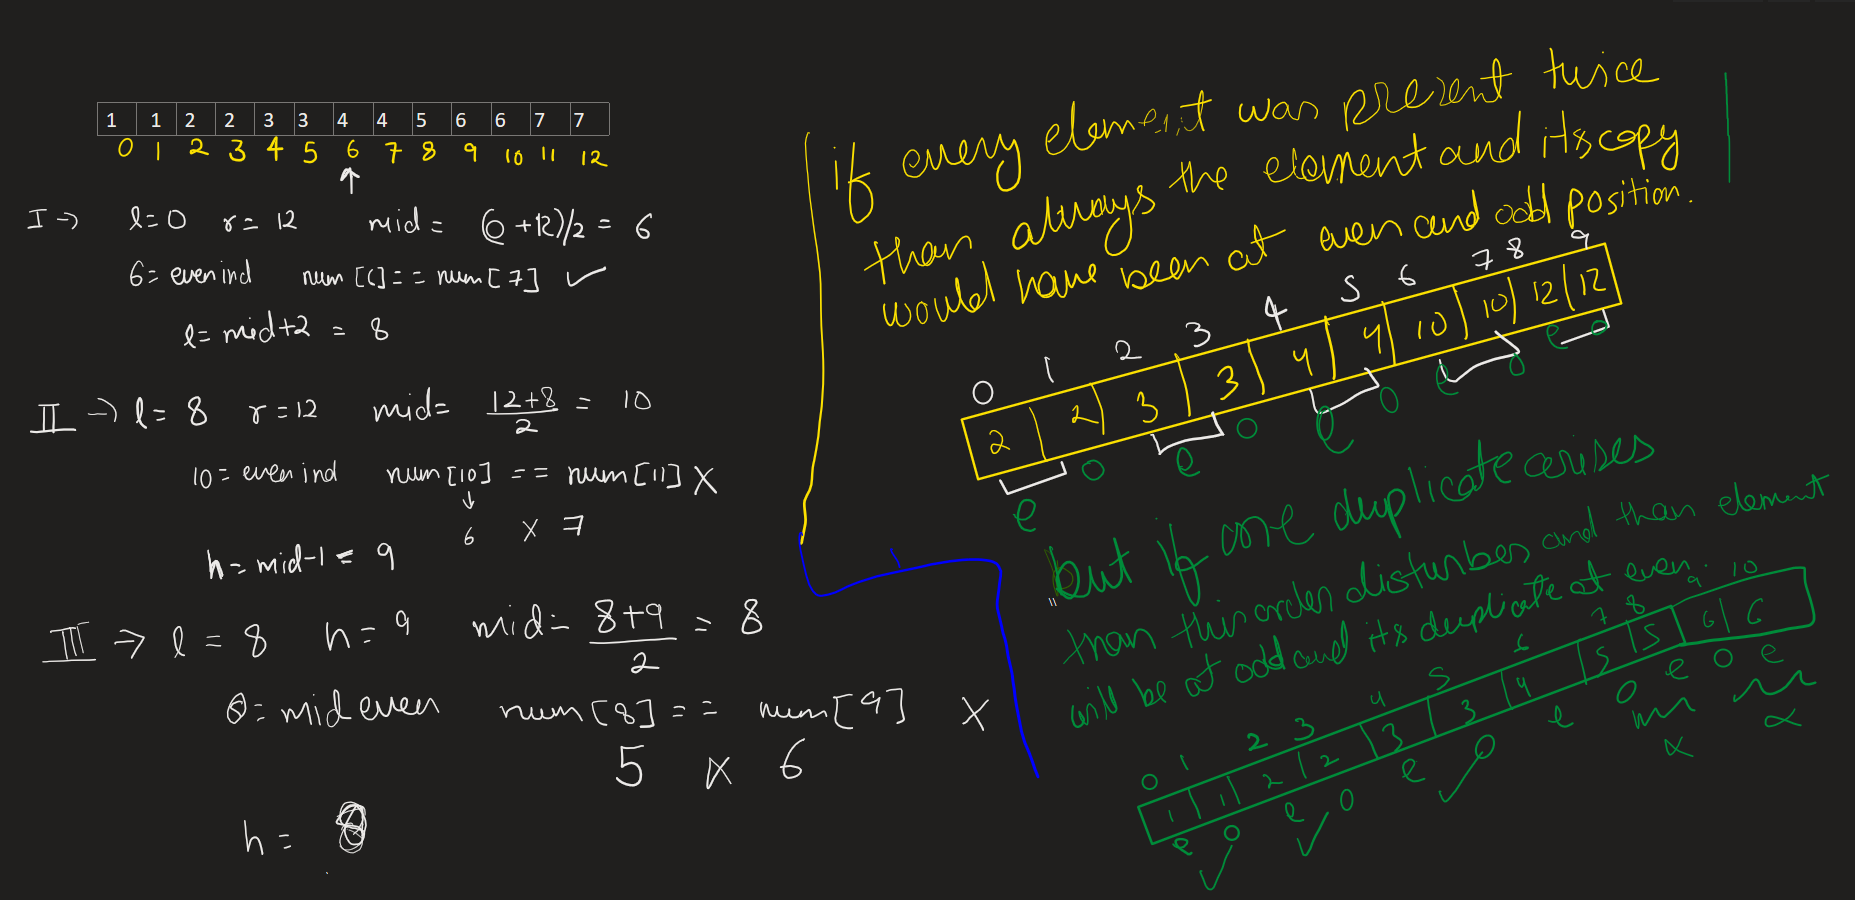 1 1 2 2 3 3 4 4 5 6 6 7 7
0 1 2 3 4 5 6 7 8 9 10 11 12
I → l=0 r=12 mid = (0+12)/2 = 6
6 = even ind num[6] == num[7] ✓
l = mid+2 = 8
II → l=8 r=12 mid = 12+8/2 = 10
10 = even ind num[10] == num[11] X
↓
6 X 7
h = mid-1 = 9
III → l = 8 h = 9 mid = 8+9/2 = 8
8 = mid even num[8] == num[9] X
5 X 6
h =
if every element was present twice
than always the element and its copy
would have been at even and odd position.
0 1 2 3 4 5 6 7 8 9
2 2 3 3 4 4 10 10 12 12
e o e o e o e o e o
but if one duplicate arises
than this order disturbes and than element
will be at odd and its duplicate at even.
0 1 2 3 4 5 6 7 8 9 10
1 1 2 2 3 3 4 5 5 6 6
e o e o e o e o e o e
✓ ✓ ✓ X X